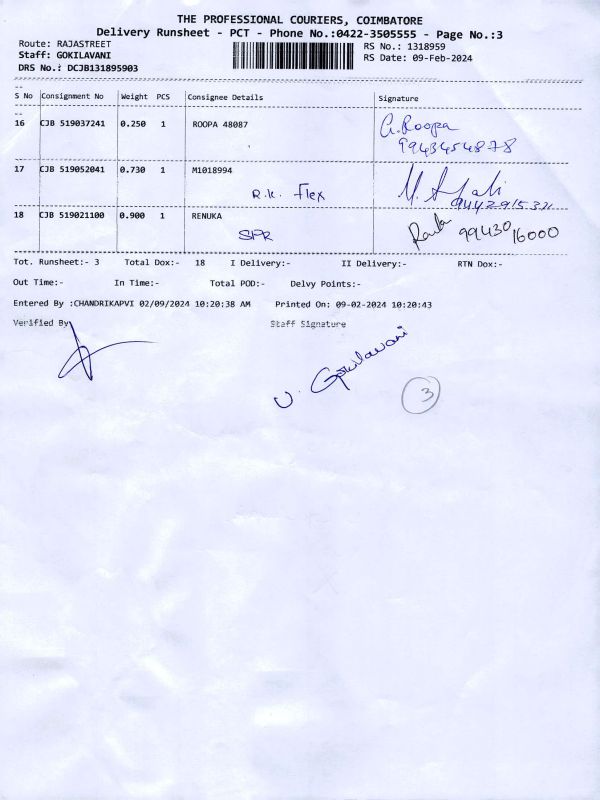 THE PROFESSIONAL COURIERS, COIMBATORE
Delivery Runsheet - PCT - Phone No.:0422-3505555 - Page No.:3
Route: RAJASTREET
RS No.: 1318959
Staff: GOKILAVANI
RS Date: 09-Feb-2024
DRS No.: DCJB131895903
S No Consignment No Weight PCS Consignee Details Signature
16 CJB 519037241 0.250 1 ROOPA 48087 G. Roopa
9943454878
17 CJB 519052041 0.730 1 M1018994
R.K. Flex
9442915321
18 CJB 519021100 0.900 1 RENUKA
SPR
99430 16000
Tot. Runsheet:- 3 Total Dox:- 18 I Delivery:- II Delivery:- RTN Dox:-
Out Time:- In Time:- Total POD:- Delvy Points:-
Entered By :CHANDRIKAPVI 02/09/2024 10:20:38 AM Printed On: 09-02-2024 10:20:43
Verified By Staff Signature
V. Gokilavani
3